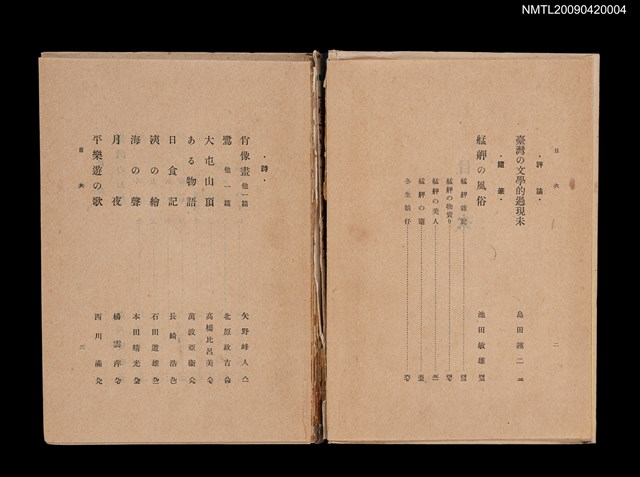 NMTL20090420004
目次
・評論・
臺灣の文學的過現未 島田謹二
・隨筆・
艋舺の風俗 池田敏雄
艋舺雜記
艋舺の物賣り
艋舺の美人
艋舺の
冬生娘仔
二
・詩・
肖像畫 他一篇 矢野峰人
鷺 他一篇 北原政吉
大屯山頂 高橋比呂美
ある物語 萬波亞衞
日食記 長崎浩
洟の繪 石田道雄
海の聲 本田晴光
月夜 橘雲萍
平樂遊の歌 西川滿
目次
三